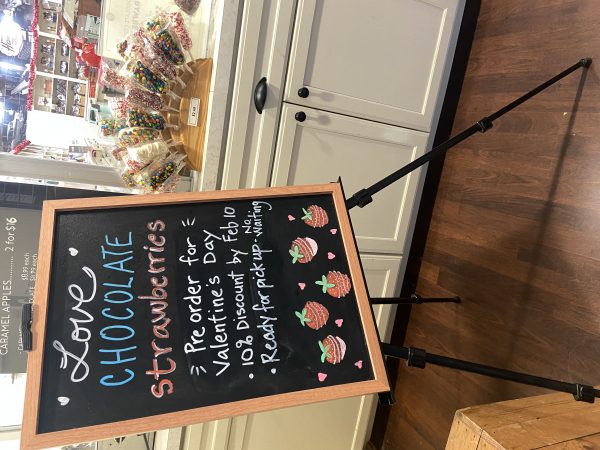 Love
CHOCOLATE
strawberries
Pre order for
Valentine's Day
• 10% Discount by Feb 10
• Ready for pick up - No waiting
CARAMEL APPLES 2 for $16